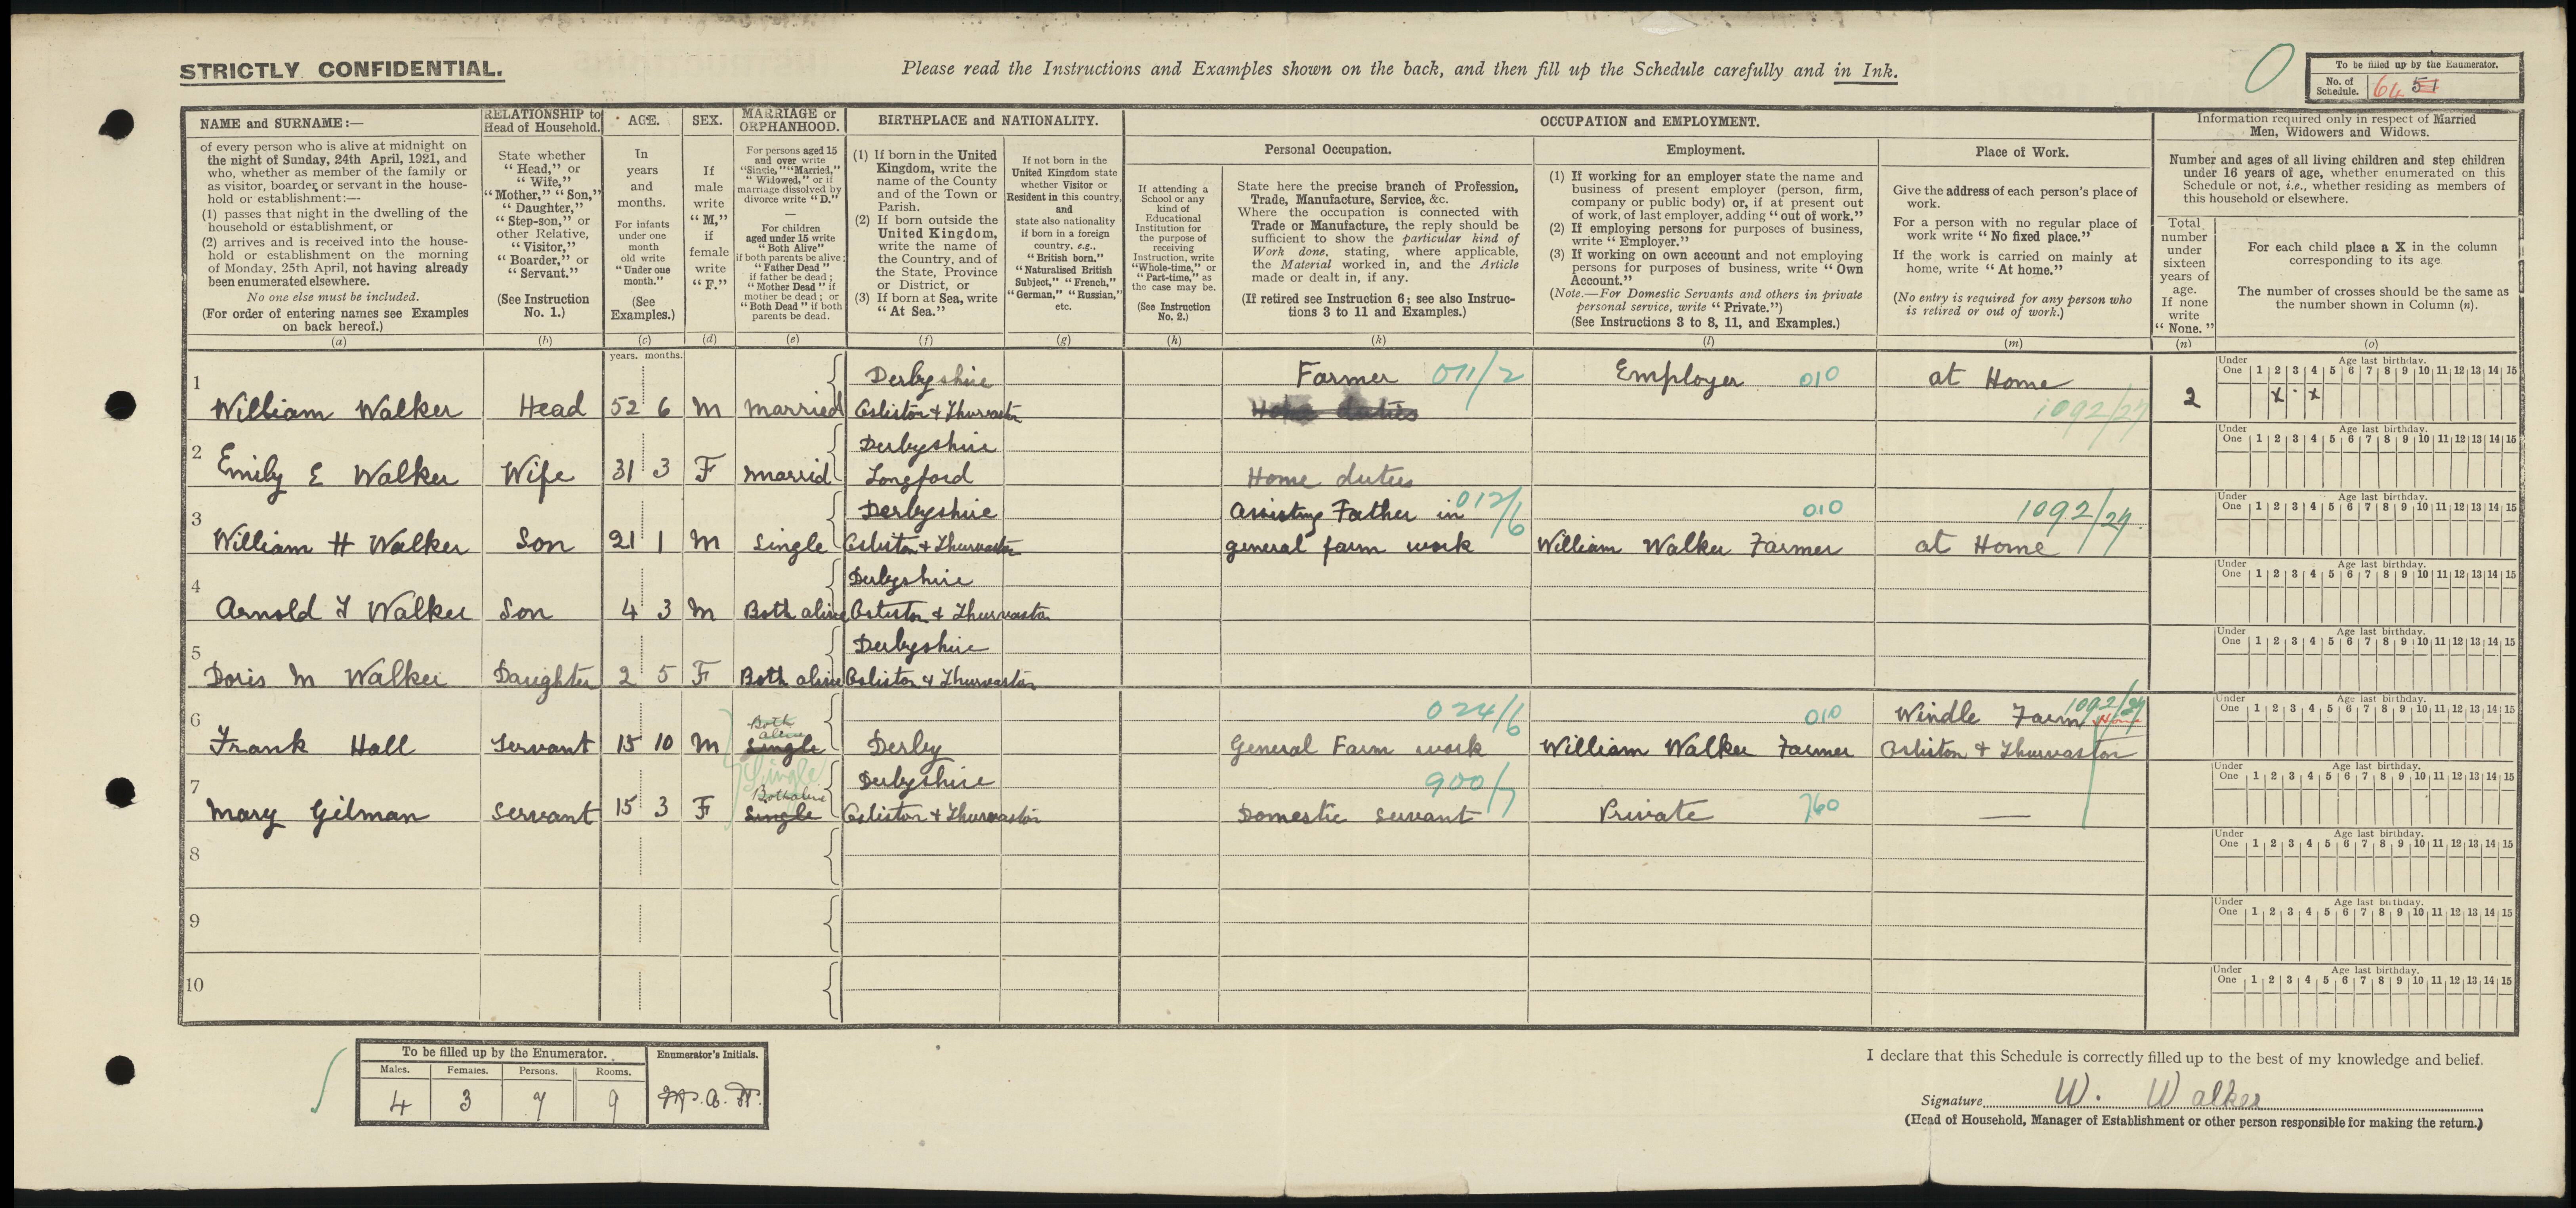 STRICTLY CONFIDENTIAL.
Please read the Instructions and Examples shown on the back, and then fill up the Schedule carefully and in Ink.
0
To be filled up by the Enumerator.
No. of Schedule. 64 51
NAME and SURNAME:—
of every person who is alive at midnight on
the night of Sunday, 24th April, 1921, and
who, whether as member of the family or
as visitor, boarder or servant in the house-
hold or establishment:—
(1) passes that night in the dwelling of the
household or establishment, or
(2) arrives and is received into the house-
hold or establishment on the morning
of Monday, 25th April, not having already
been enumerated elsewhere.
No one else must be included.
(For order of entering names see Examples
on back hereof.)
(a)
RELATIONSHIP to
Head of Household.
State whether
"Head," or
"Wife,"
"Mother," "Son,"
"Daughter,"
"Step-son," or
other Relative,
"Visitor,"
"Boarder," or
"Servant."
(See Instruction
No. 1.)
(b)
AGE.
In
years
and
months.
For infants
under one
month
old write
"Under one
month."
(See
Examples.)
(c)
SEX.
If
male
write
"M,"
if
female
write
"F."
(d)
MARRIAGE or
ORPHANHOOD.
For persons aged 15
and over write
"Single," "Married,"
"Widowed," or if
marriage dissolved by
divorce write "D."
—
For children
aged under 15 write
"Both Alive"
if both parents be alive;
"Father Dead"
if father be dead;
"Mother Dead" if
mother be dead; or
"Both Dead" if both
parents be dead.
(e)
BIRTHPLACE and NATIONALITY.
(1) If born in the United
Kingdom, write the
name of the County
and of the Town or
Parish.
(2) If born outside the
United Kingdom,
write the name of
the Country, and of
the State, Province
or District, or
(3) If born at Sea, write
"At Sea."
(f)
If not born in the
United Kingdom state
whether Visitor or
Resident in this country,
and
state also nationality
if born in a foreign
country, e.g.,
"British born,"
"Naturalised British
Subject," "French,"
"German," "Russian,"
etc.
(g)
OCCUPATION and EMPLOYMENT.
If attending a
School or any
kind of
Educational
Institution for
the purpose of
receiving
Instruction, write
"Whole-time," or
"Part-time," as
the case may be.
(See Instruction
No. 2.)
(h)
Personal Occupation.
State here the precise branch of Profession,
Trade, Manufacture, Service, &c.
Where the occupation is connected with
Trade or Manufacture, the reply should be
sufficient to show the particular kind of
Work done, stating, where applicable,
the Material worked in, and the Article
made or dealt in, if any.
(If retired see Instruction 6; see also Instruc-
tions 3 to 11 and Examples.)
(k)
Employment.
(1) If working for an employer state the name and
business of present employer (person, firm,
company or public body) or, if at present out
of work, of last employer, adding "out of work."
(2) If employing persons for purposes of business,
write "Employer."
(3) If working on own account and not employing
persons for purposes of business, write "Own
Account."
(Note.—For Domestic Servants and others in private
personal service, write "Private.")
(See Instructions 3 to 8, 11, and Examples.)
(l)
Place of Work.
Give the address of each person's place of
work.
For a person with no regular place of
work write "No fixed place."
If the work is carried on mainly at
home, write "At home."
(No entry is required for any person who
is retired or out of work.)
(m)
Information required only in respect of Married
Men, Widowers and Widows.
Number and ages of all living children and step children
under 16 years of age, whether enumerated on this
Schedule or not, i.e., whether residing as members of
this household or elsewhere.
Total
number
under
sixteen
years of
age.
If none
write
"None."
(n)
For each child place a X in the column
corresponding to its age
The number of crosses should be the same as
the number shown in Column (n).
(o)
years. months.
1 Derbyshire Farmer 011/2 Employer 010 at Home
William Walker Head 52 6 M Married Osliston & Thurvaston Home duties 1092/27 2 x x
Under One 1 2 3 4 5 6 7 8 9 10 11 12 13 14 15 Age last birthday.
2 Derbyshire
Emily E Walker Wife 31 3 F Marrid Longford Home duties
Under One 1 2 3 4 5 6 7 8 9 10 11 12 13 14 15 Age last birthday.
3 Derbyshire Assisting Father in 012/6 010 1092/27
William H Walker Son 21 1 M Single Osliston & Thurvaston general farm work William Walker Farmer at Home
Under One 1 2 3 4 5 6 7 8 9 10 11 12 13 14 15 Age last birthday.
4 Derbyshire
Arnold F Walker Son 4 3 M Both alive Osliston & Thurvaston
Under One 1 2 3 4 5 6 7 8 9 10 11 12 13 14 15 Age last birthday.
5 Derbyshire
Doris M Walker Daughter 2 5 F Both alive Osliston & Thurvaston
Under One 1 2 3 4 5 6 7 8 9 10 11 12 13 14 15 Age last birthday.
6 Both alive 024/6 010 Windle Farm 1092/27 Home
Frank Hall Servant 15 10 M Single Derby General Farm work William Walker Farmer Osliston & Thurvaston
Under One 1 2 3 4 5 6 7 8 9 10 11 12 13 14 15 Age last birthday.
7 Single Both alive Derbyshire 900/7 760
Mary Gilman Servant 15 3 F Single Osliston & Thurvaston Domestic Servant Private —
Under One 1 2 3 4 5 6 7 8 9 10 11 12 13 14 15 Age last birthday.
8
Under One 1 2 3 4 5 6 7 8 9 10 11 12 13 14 15 Age last birthday.
9
Under One 1 2 3 4 5 6 7 8 9 10 11 12 13 14 15 Age last birthday.
10
Under One 1 2 3 4 5 6 7 8 9 10 11 12 13 14 15 Age last birthday.
To be filled up by the Enumerator. Enumerator's Initials.
Males. Females. Persons. Rooms.
4 3 7 9
I declare that this Schedule is correctly filled up to the best of my knowledge and belief.
Signature W. Walker
(Head of Household, Manager of Establishment or other person responsible for making the return.)